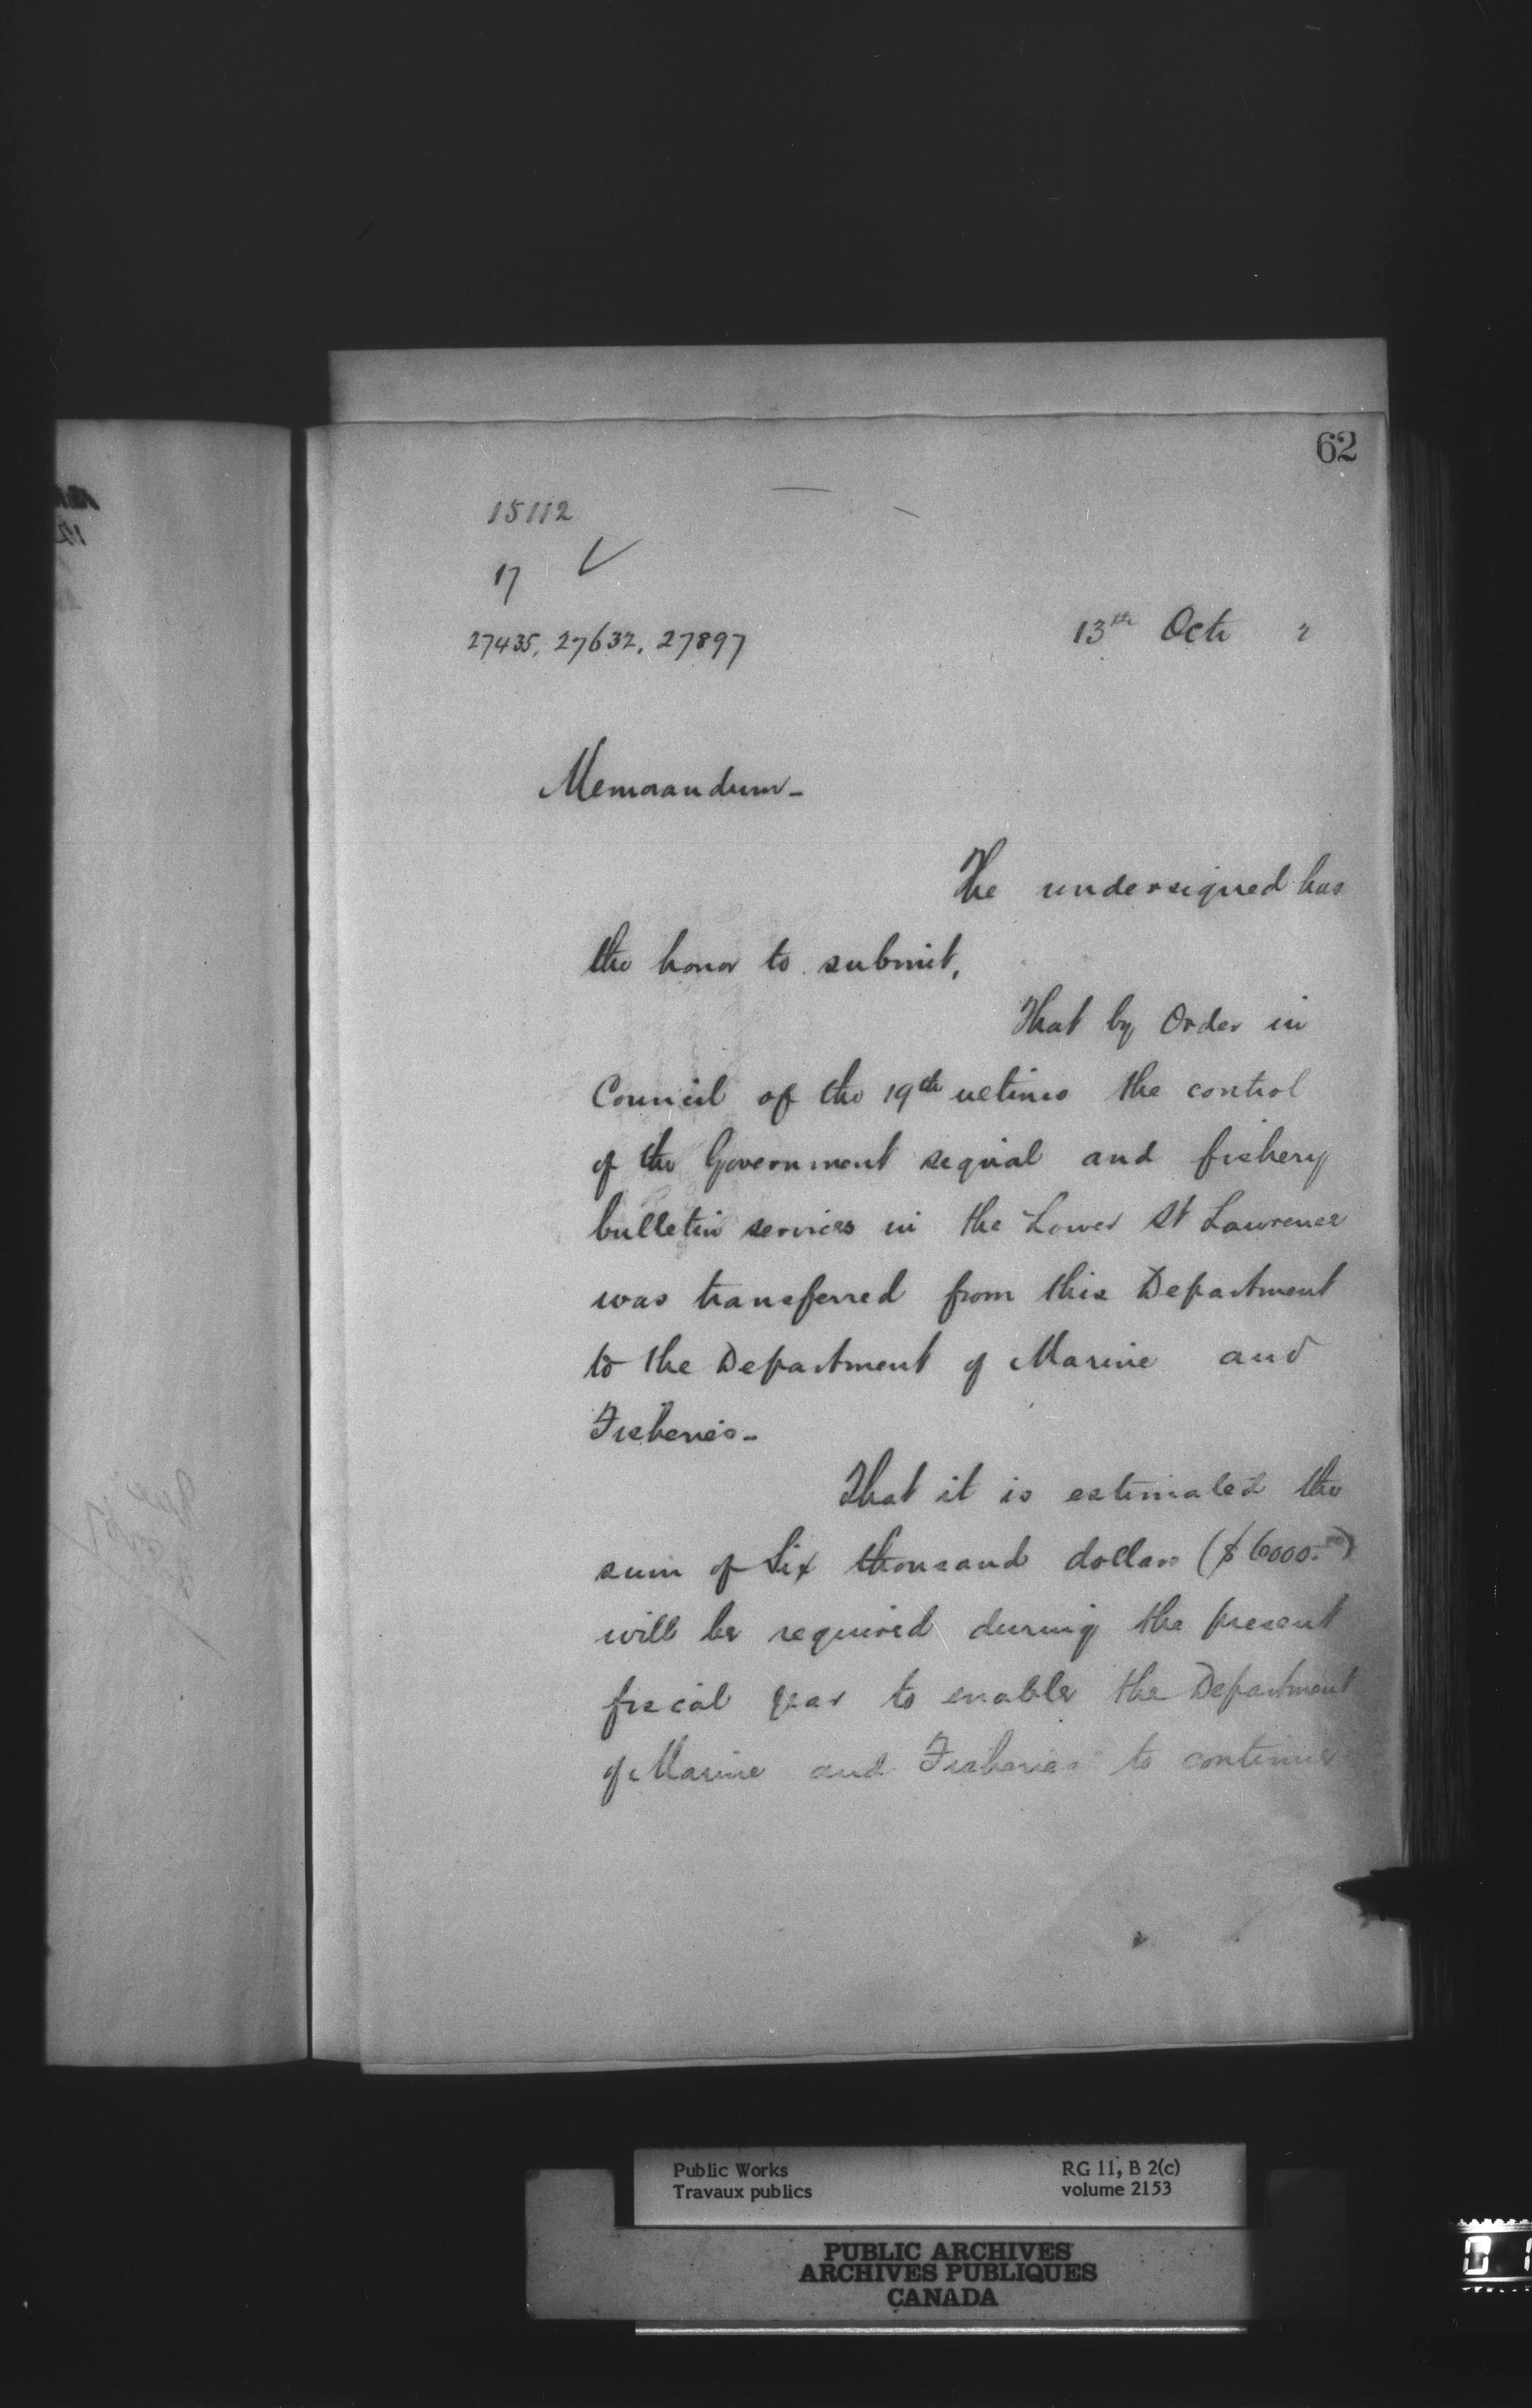 62
15112
17
27435, 27632, 27897
13th Octr 2
Memorandum-
The undersigned has
the honor to submit,
That by Order in
Council of the 19th ultimo the control
of the Government signal and fishery
bulletin services in the Lower St Lawrence
was transferred from this Department
to the Department of Marine and
Fisheries-
That it is estimated the
sum of Six thousand dollars ($6000.00)
will be required during the present
fiscal year to enable the Department
of Marine and Fisheries to continue
Public Works
Travaux publics
RG 11, B 2(c)
volume 2153
PUBLIC ARCHIVES
ARCHIVES PUBLIQUES
CANADA